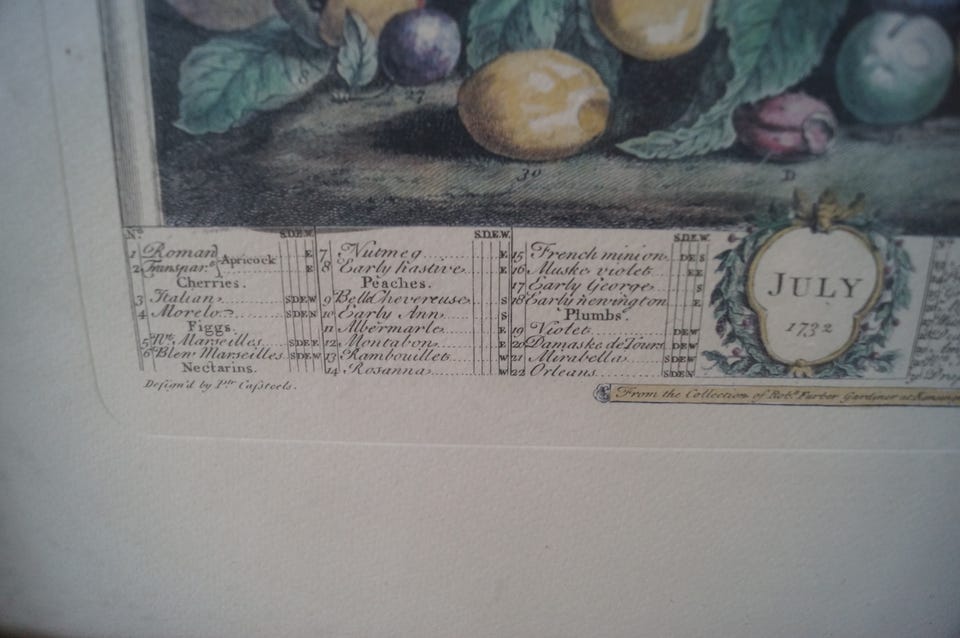 27
30
D
No.
S.D.E.W.
1 Roman
2 Transpar.t
Apricock
E
E
Cherries.
3 Italian SDEW
4 Morelo SDEN
Figgs.
5 Wt. Marseilles SDEE
6 Blew Marseilles SDEW
Nectarins.
S.D.E.W.
7 Nutmeg E
8 Early hastive E
Peaches.
9 Bell Chevereuse S
10 Early Ann S
11 Albermarle E
12 Montabon E
13 Rambouillet W
14 Rosanna W
S.D.E.W.
15 French minion DES
16 Muske violet EE
17 Early George S
18 Early newington E
Plumbs.
19 Violet DEW
20 Damaske de Tours DEW
21 Mirabella SDEW
22 Orleans SDEN
JULY
1732
Design'd by Ptr Casteels.
From the Collection of Robt. Furber Gardiner at